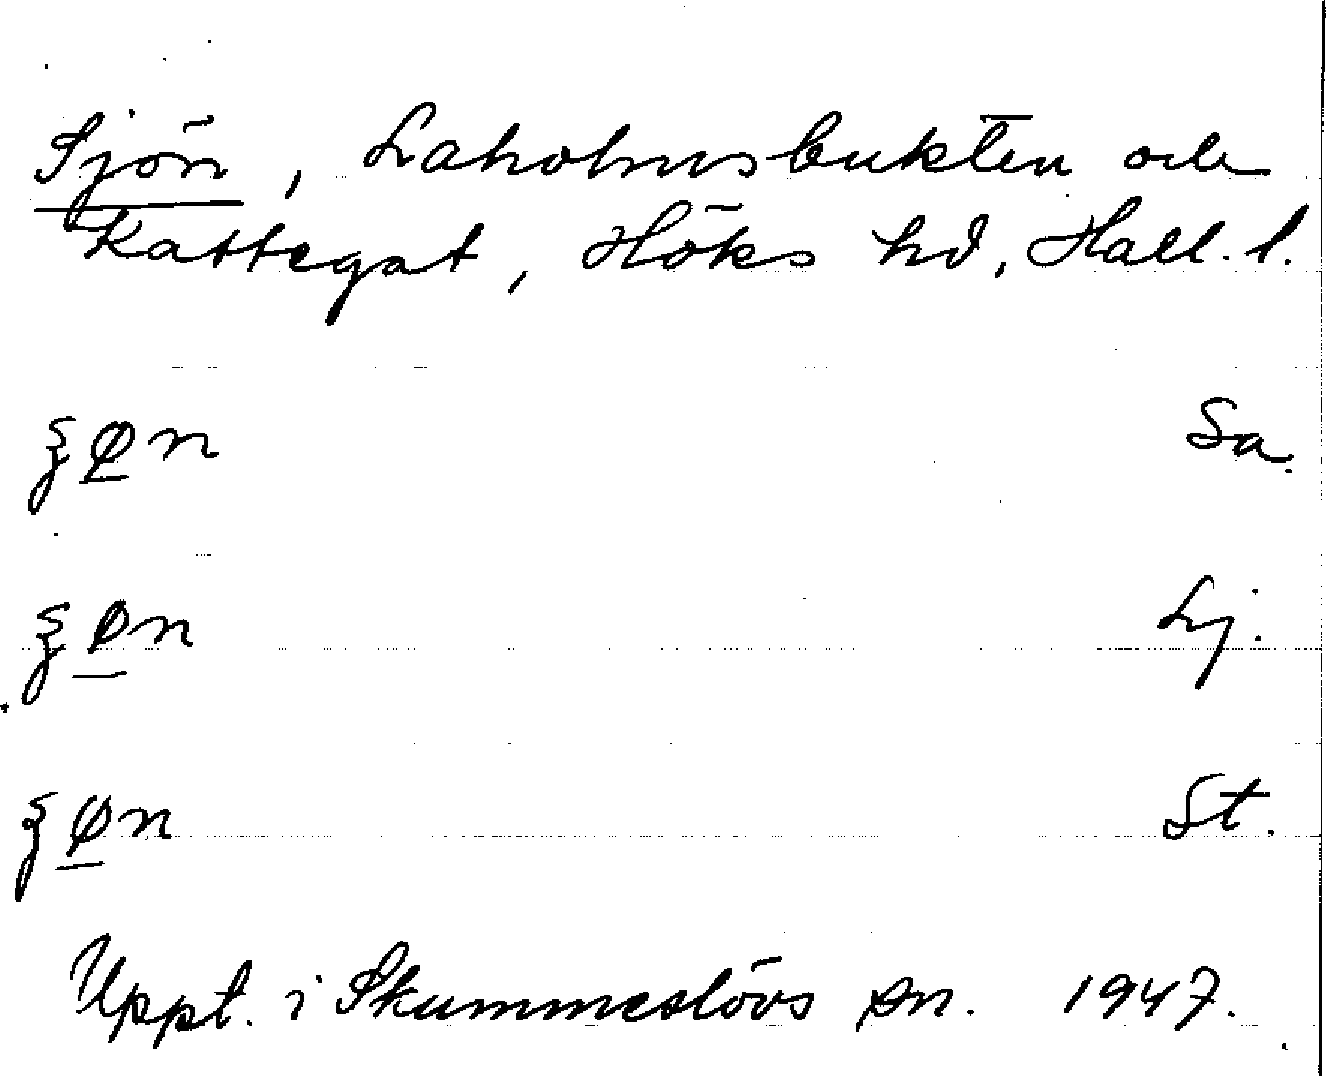 Sjön, Laholmsbukten och
Kattegat, Höks hd, Hall. l.
ξø̲n Sa.
ξø̲n Lj.
ξø̲n St.
Uppt. i Skummeslövs sn. 1947.